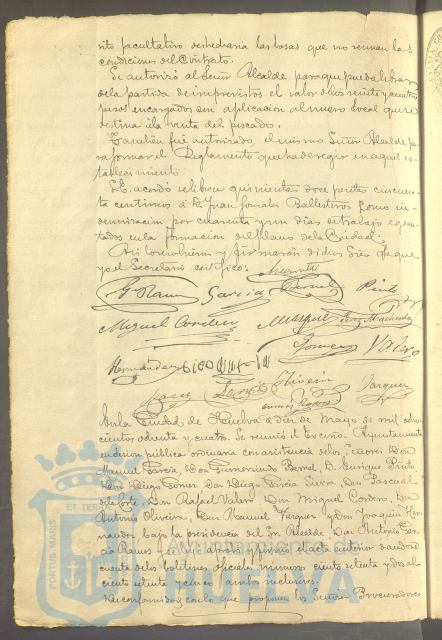 rito facultativo desharia las losas que no reunan las
condiciones del Contrato.
Se autorizó al Señor Alcalde para que pueda librar
de la partida de imprevistos el valor de los veinte y cuatro
pesos encargados con aplicacion al nuevo local que se
destina á la venta del pescado.
Tambien fué autorizado, el mismo Señor Alcalde pa
ra formar el Reglamento que ha de regir en aquel es-
tablecimiento.
Se acordó se libren quinientas doce pesetas cincuen
ta centimos á D. Juan Gonzalez Ballesteros como in-
demnizacion por cuarenta y un dias de trabajo ejecu-
tados en la formacion del plano de la Ciudad.
Asi lo resolvieron y firmaron dichos Sres de que
yo el Secretario certifico.
G. Ramos Garcia Bernal Pinto
Miguel Cordero Marquez
Gomez Valero
Hernandez
Oliveira Vazquez
En la Ciudad de Huelva á diez de Mayo de mil ocho-
cientos ochenta y cuatro. Se reunió el Excmo. Ayuntamiento
en sesion pública ordinaria con asistencia de los Señores Don
Manuel Garcia, Don Gumersindo Bernal, D. Enrique Pinto
Don Diego Gomez Don Diego Garcia Sierra Don Pascual
del Corte, Don Rafael Valero Don Miguel Cordero, Don
Antonio Oliveira, Don Manuel Vazquez y Don Joaquin Her-
nandez bajo la presidencia del Sr. Alcalde Don Antonio Gar-
cia Ramos y aprobada y firmada el acta anterior se dió
cuenta de los boletines oficiales numeros ciento setenta y dos al
ciento setenta y cinco ambos inclusives.
De conformidad con lo que proponen los Señores Procuradores
PORTUS MARIS ET TERRAE
Ayuntamiento de
HUELVA